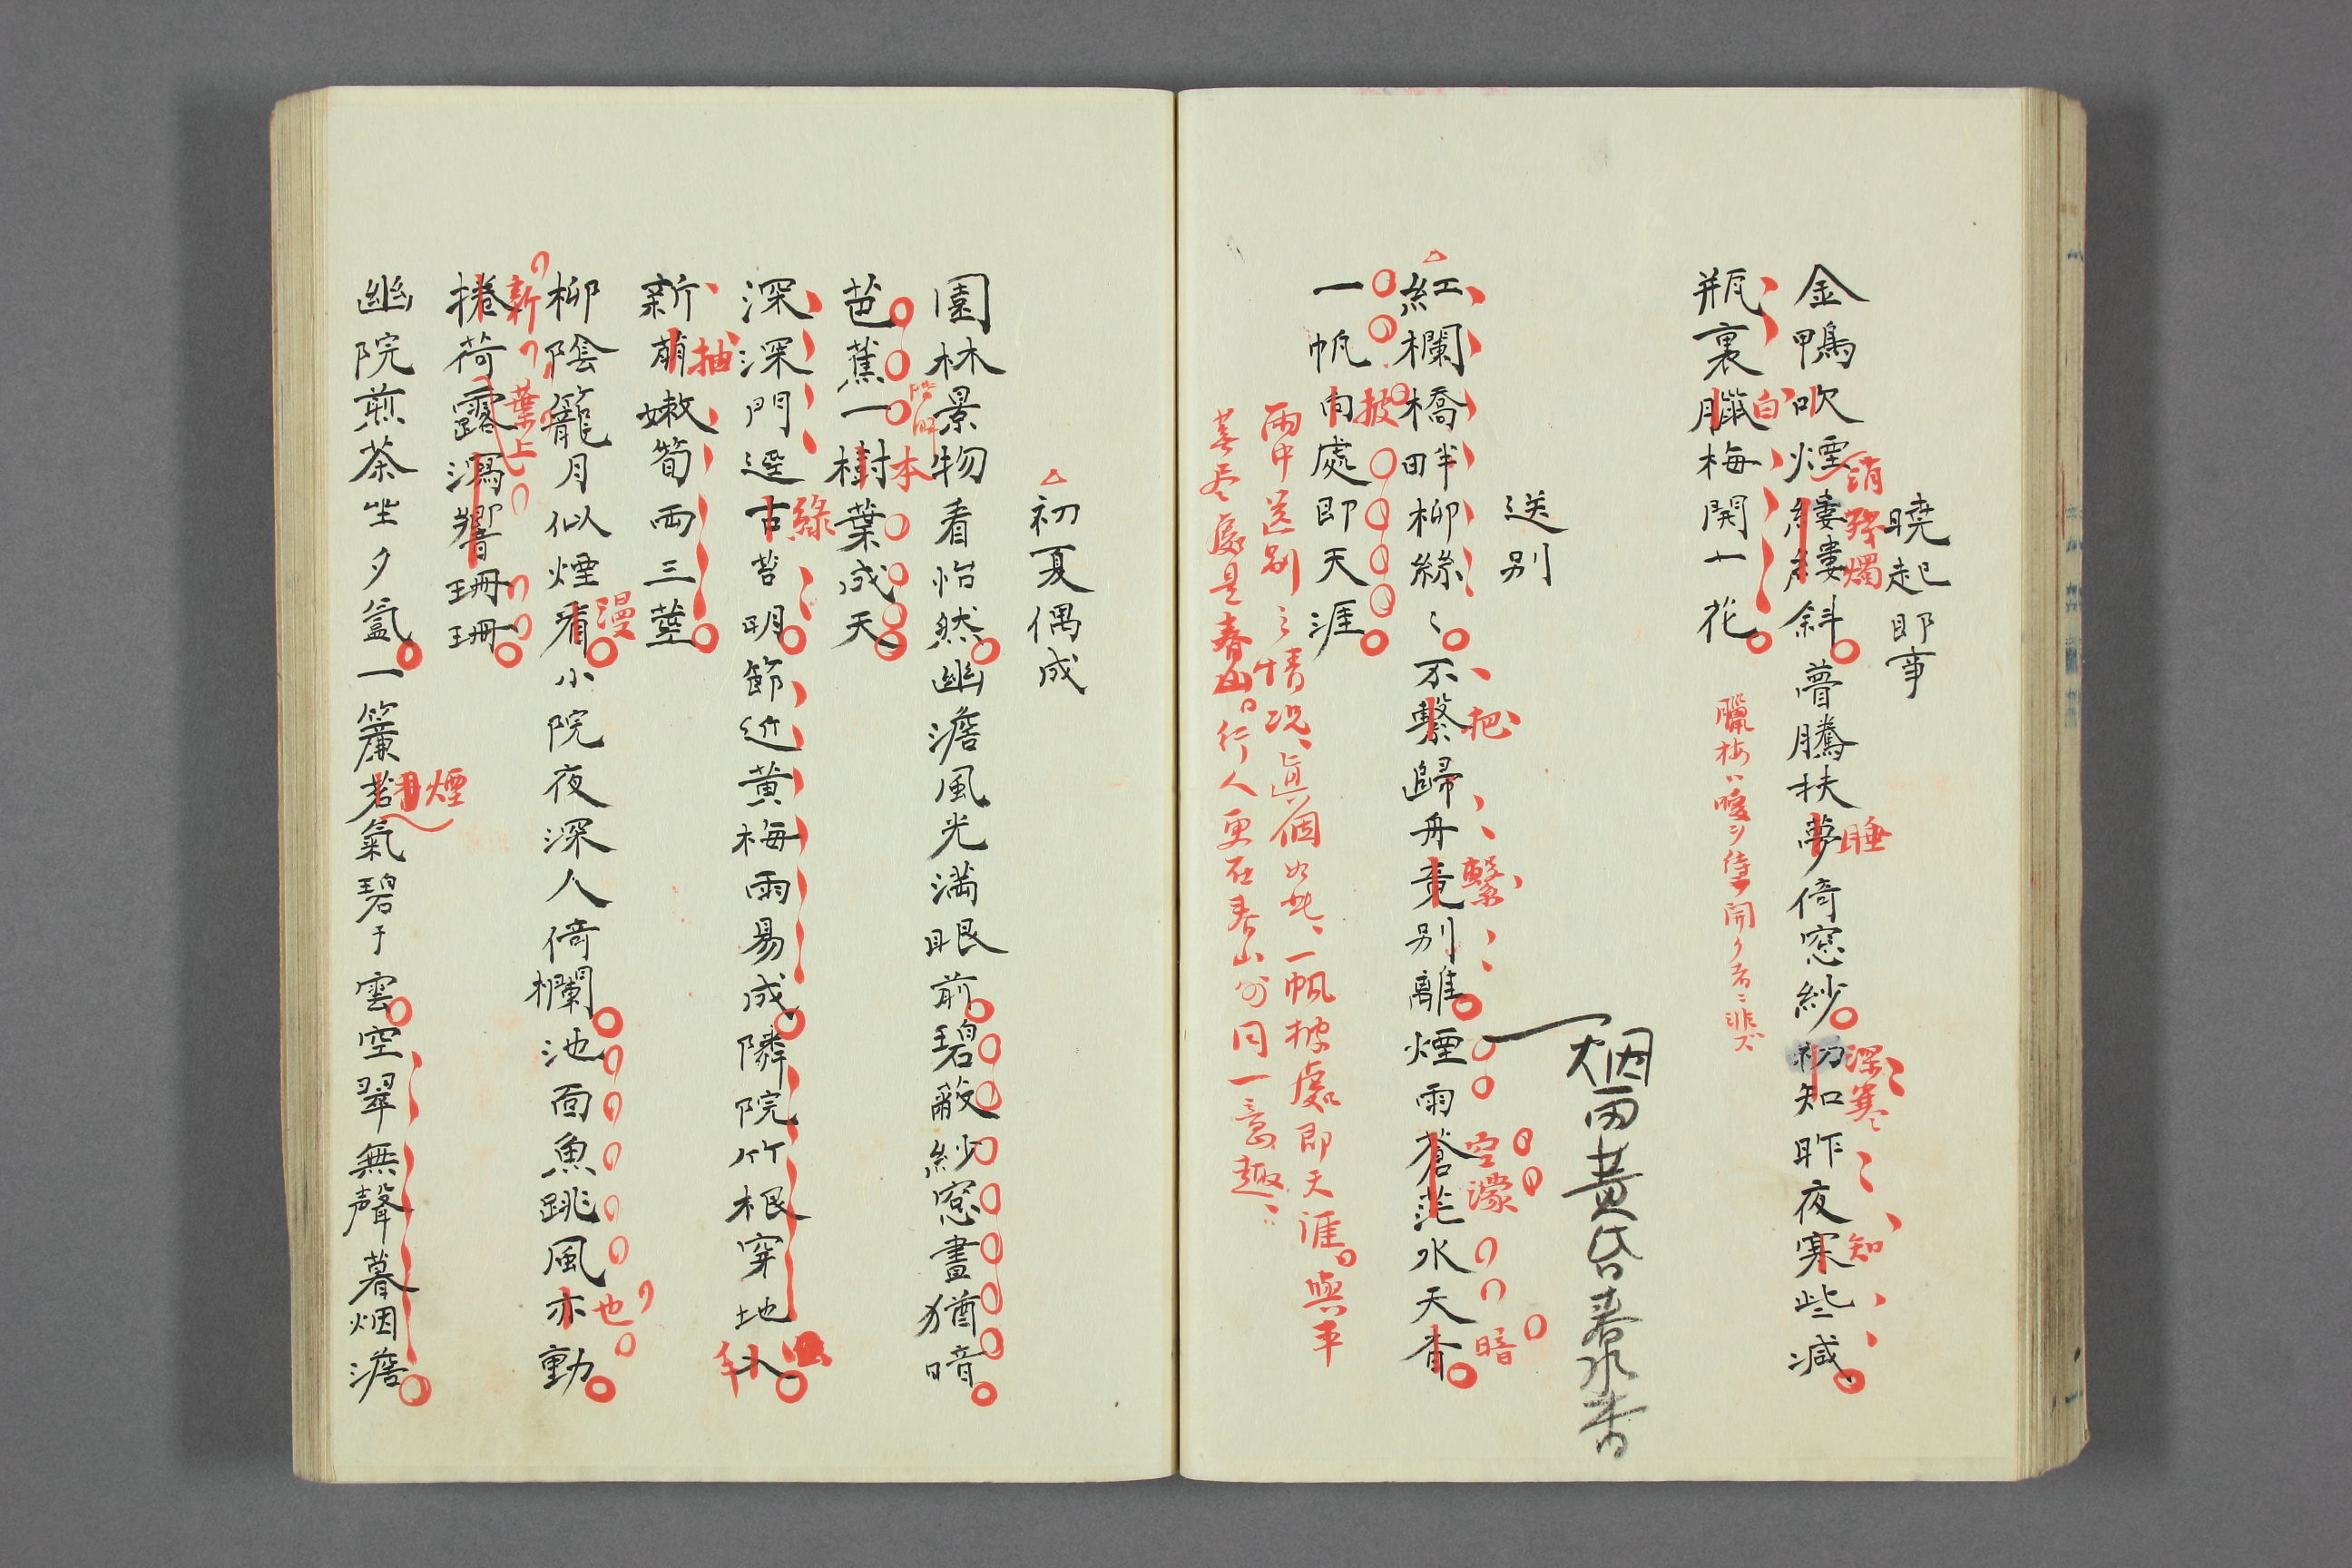 曉起即事
金鴨吹煙縷縷斜瞢騰扶夢倚窓紗初知昨夜寒些減
銷 殘燭 睡 深寒 知
瓶裏臘梅開一花
白
臘梅ハ暖ヲ待テ開ク者ニ非ズ
烟雨黄昏春水香
送别
紅欄橋畔柳絲〻不繫歸舟竟别離煙雨蒼茫水天杳
把 繫 空濛 暗
一帆向處即天涯
披
雨中送别之情况、眞個如此、一帆披處即天涯。與平
蕪尽處是春山。行人更在春山外同一意趣、
初夏偶成
園林景物看怡然幽澹風光満眼前碧蔽紗窓晝猶暗
芭蕉一樹葉成天
本
深深門逕古苔明節近黄梅雨易成隣院竹根穿地入
綠
新萠嫩筍両三莖
抽
柳陰籠月似煙看小院夜深人倚欄池面魚跳風亦動
漫 也
捲荷露瀉響珊珊
新 葉上
幽院煎茶坐夕氳一簾茗氣碧于雲空翠無聲暮烟澹
煙